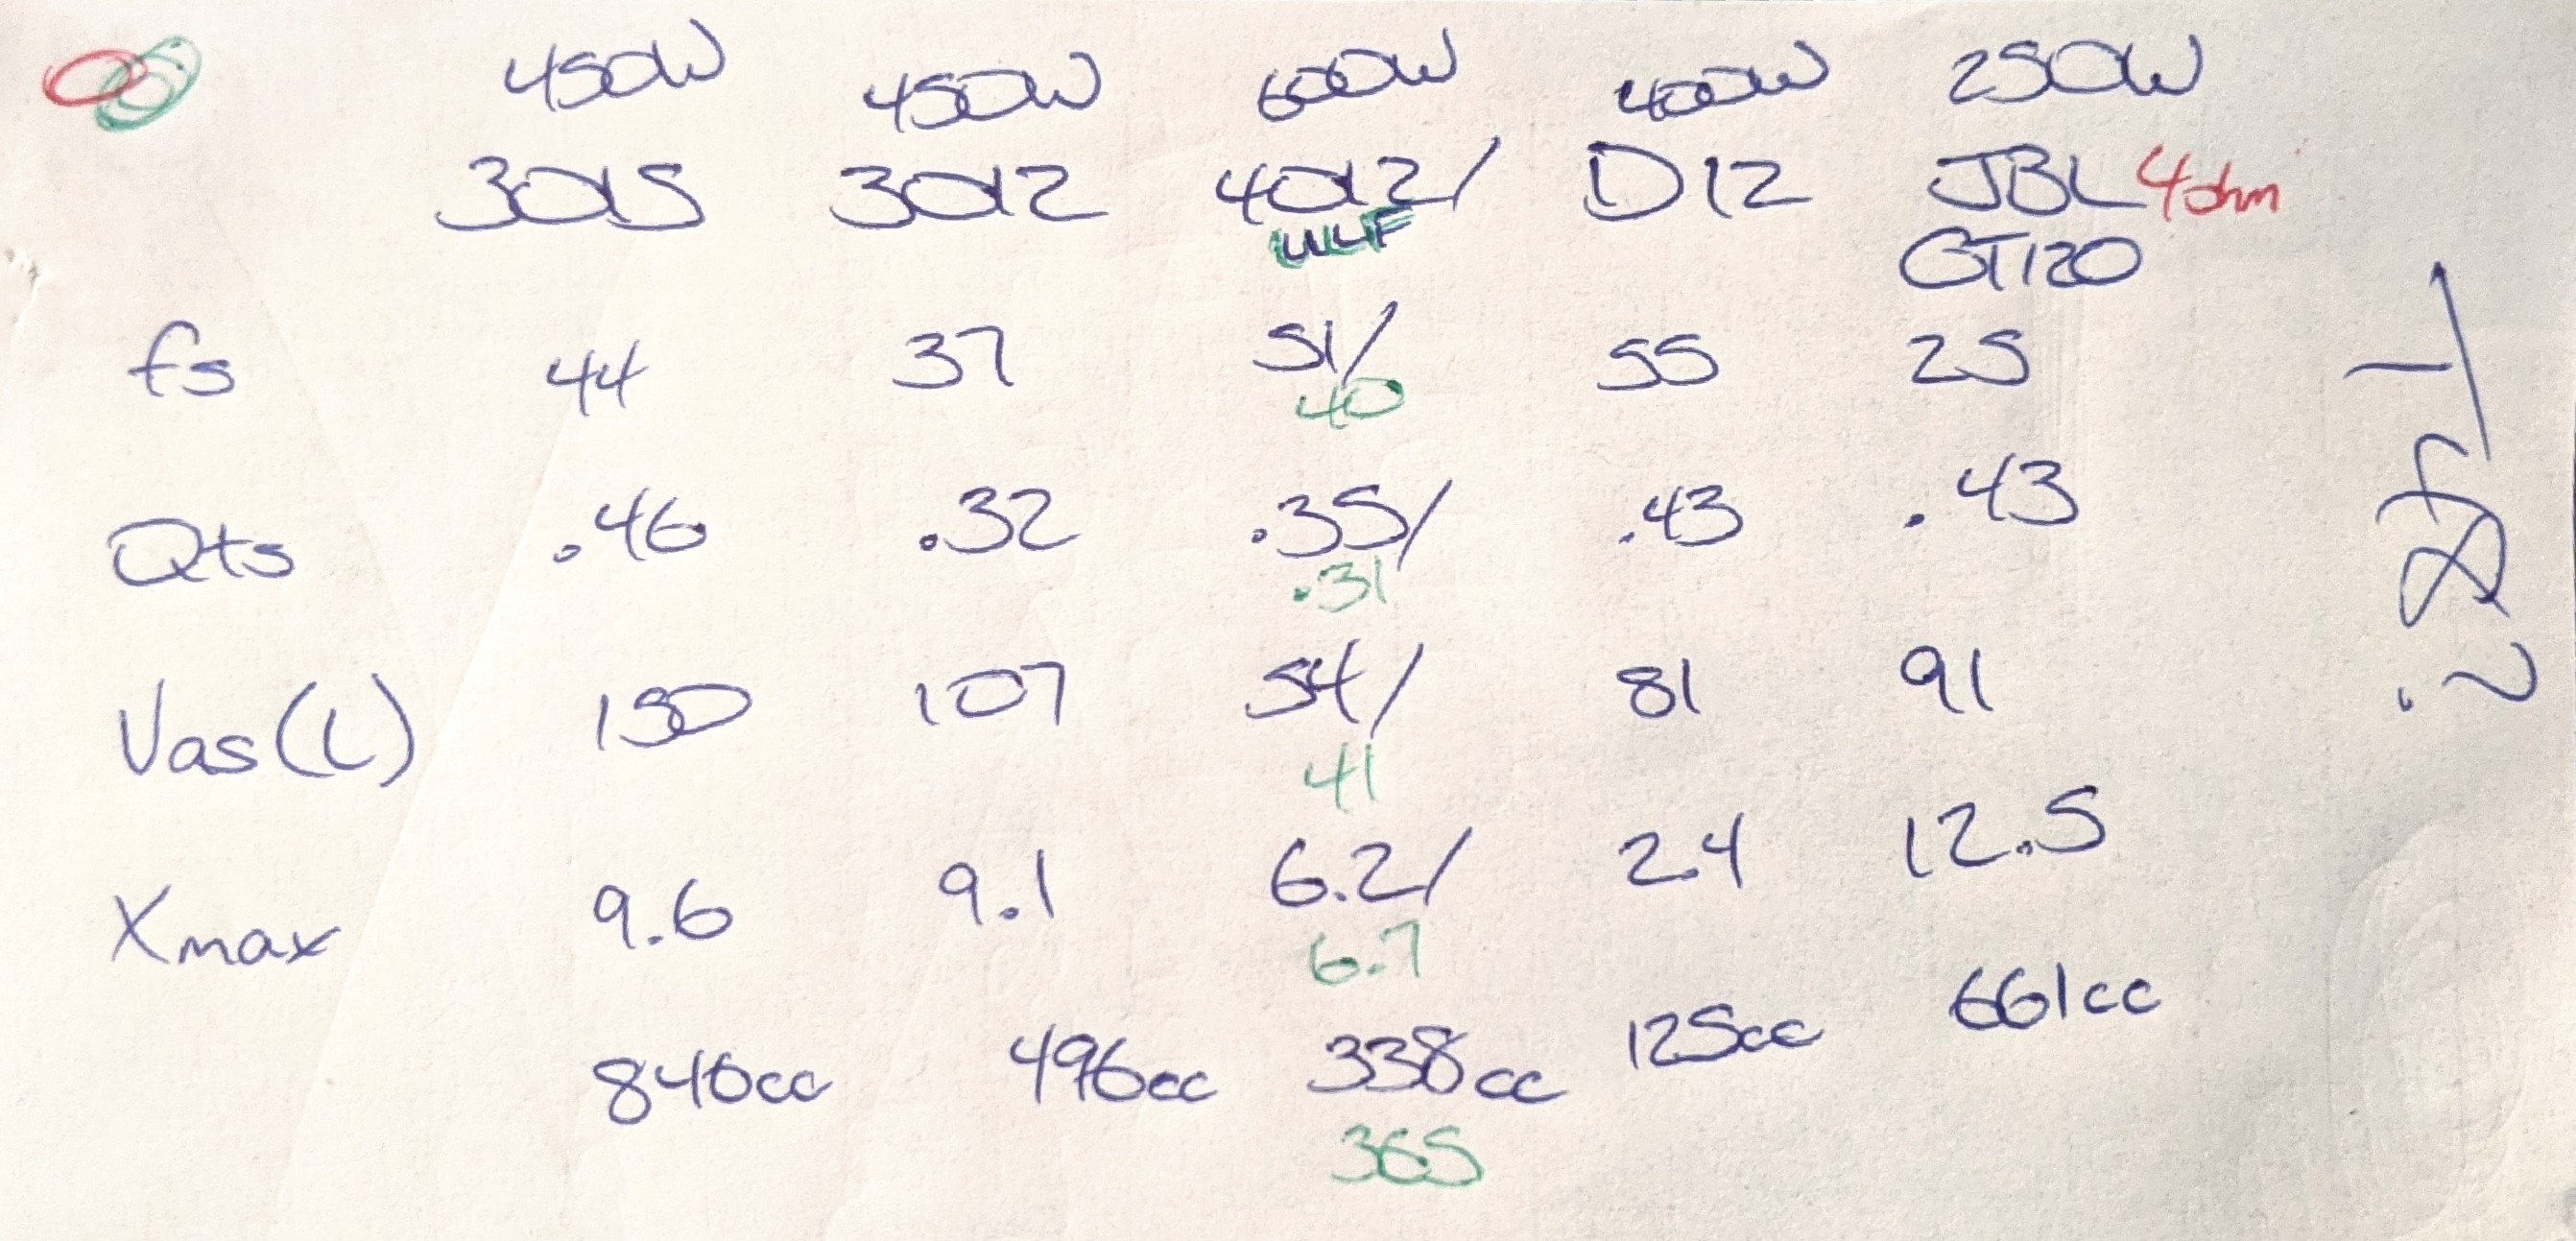 450W 450W 600W 400W 250W
3015 3012 4012/ D12 JBL 4ohm
GT120
fs 44 37 51/ 55 25
40
Qts .46 .32 .35/ .43 .43
.31
Vas(L) 150 107 54/ 81 91
41
Xmax 9.6 9.1 6.2/ 2.4 12.5
6.7
840cc 496cc 338cc 125cc 661cc
365